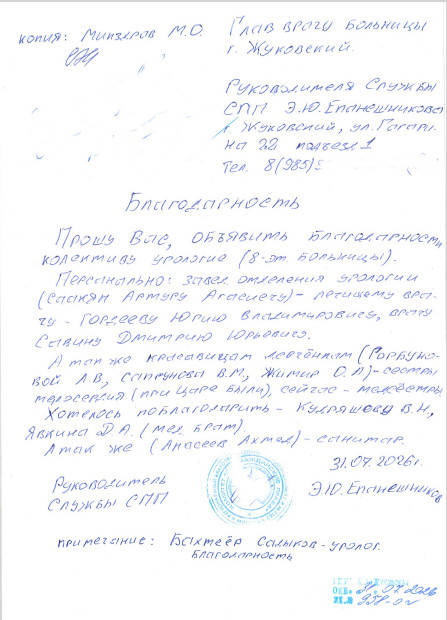 копия: Минздрав М.О. Глав врачу Больницы
г. Жуковский.
Руководителя Службы
СПП Э.Ю. Епанешникова
г. Жуковский, ул. Гагари-
на 28 подъезд 1
Тел. 8(985)
Благодарность
Прошу Вас, объявить Благодарность
колективу урологие (8-эт больницы).
Персонально: завед отделения урологии
(Саакян Артуру Агасиечу) - лечищему вра-
чу - Гордееву Юрию Владимировичу, врачу
Савину Дмитрию Юрьевичу.
А так же красавицам девчёнкам (Горбуно-
вой Л.В, Сапрунова В.М, Житир О.А) - сестры
милосердия (при Царе были), сейчас - медсёстры
Хотелось поблагодарить - Кудряшову В.Н.,
Явкина Д.А. (мед брат).
А так же (Апасеев Ахмед) - санитар.
31.07.2026г.
Руководитель Э.Ю. Епанешников
Службы СПП
примечание: Бахтеёр Садыков - уролог.
Благодарность
31.07.2026